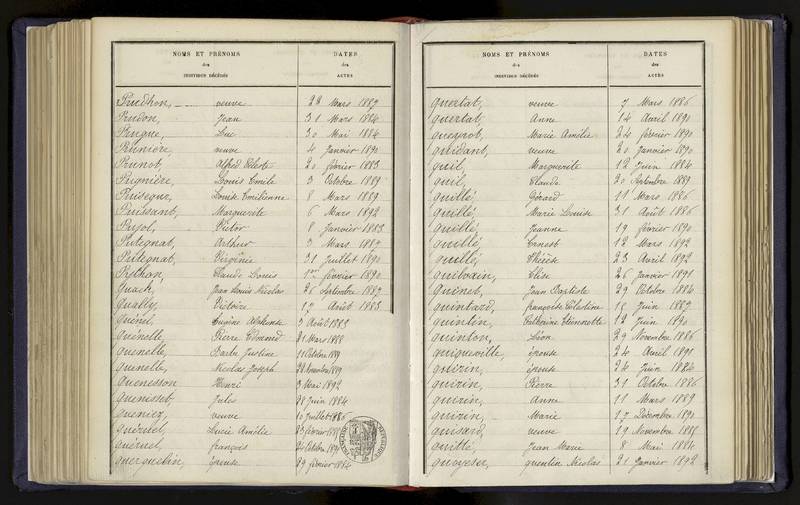 NOMS ET PRÉNOMS DATES
des des
INDIVIDUS DÉCÉDÉS ACTES
Prudhon, veuve 22 Mars 1887
Prudon, Jean 31 Mars 1884
Prugue, Luc 30 Mai 1884
Prunière, veuve 4 Janvier 1890
Prunot, Alfred Céleste 20 février 1883
Pugnière, Louis Emile 3 Octobre 1889
Puisegur, Louise Emilienne 8 Mars 1889
Puissant, Marguerite 6 Mars 1892
Pujol, Victor 8 Janvier 1883
Putegnat, Arthur 3 Mars 1887
Puttegnat, Virginie 31 Juillet 1890
Claude Louis 1er février 1890
Quaché, Jean Louis Nicolas 26 Septembre 1887
Qually, Victoire 17 Août 1883
quénel, Eugène Alphonse 3 Août 1883
quénelle, Pierre Edmond 21 Mars 1888
quenelle, Barbe Justine 21 Octobre 1889
quenelle, Nicolas Joseph 1889
quenesson Henri 3 Mai 1892
quenisset, Jules 28 Juin 1884
queniez, veuve 10 Juillet 1886
quéruel, Lucie Amélie 23 février
quéruel, françois 24 Octobre
querquelin, épouse 29 février 1884
NOMS ET PRÉNOMS DATES
des des
INDIVIDUS DÉCÉDÉS ACTES
quertat, veuve 7 Mars 1886
quertat, Anne 14 Avril 1890
quesnot, Marie Amélie 24 février 1890
quidant, veuve 20 Janvier 1890
quil, Marguerite 12 Juin 1884
quil, Claude 20 Septembre 1889
quillé, Gérard 11 Mars 1886
quillé, Marie Louise 31 Août 1886
quillé, Jeanne 19 février 1890
quillé, Ernest 12 Mars 1892
quillé, 23 Avril 1892
quilvain, Elise 26 Janvier 1891
quinet, Jean Baptiste 29 Octobre 1884
quintard, françoise Célestine 15 Juin 1887
quintin, Catherine Etiennette 12 Juin 1890
quinton, Léon 29 Novembre 1886
quiqueville, épouse 24 Avril 1891
quirin, épouse 24 Juin 1884
quirin, Pierre 31 Octobre 1886
quirin, Anne 11 Mars 1889
quirin, Marie 17 Décembre 1890
quisard, veuve 19 Novembre 1885
quitté, Jean Marie 8 Mai 1884
quoyeser, quentin Nicolas 21 Janvier 1892